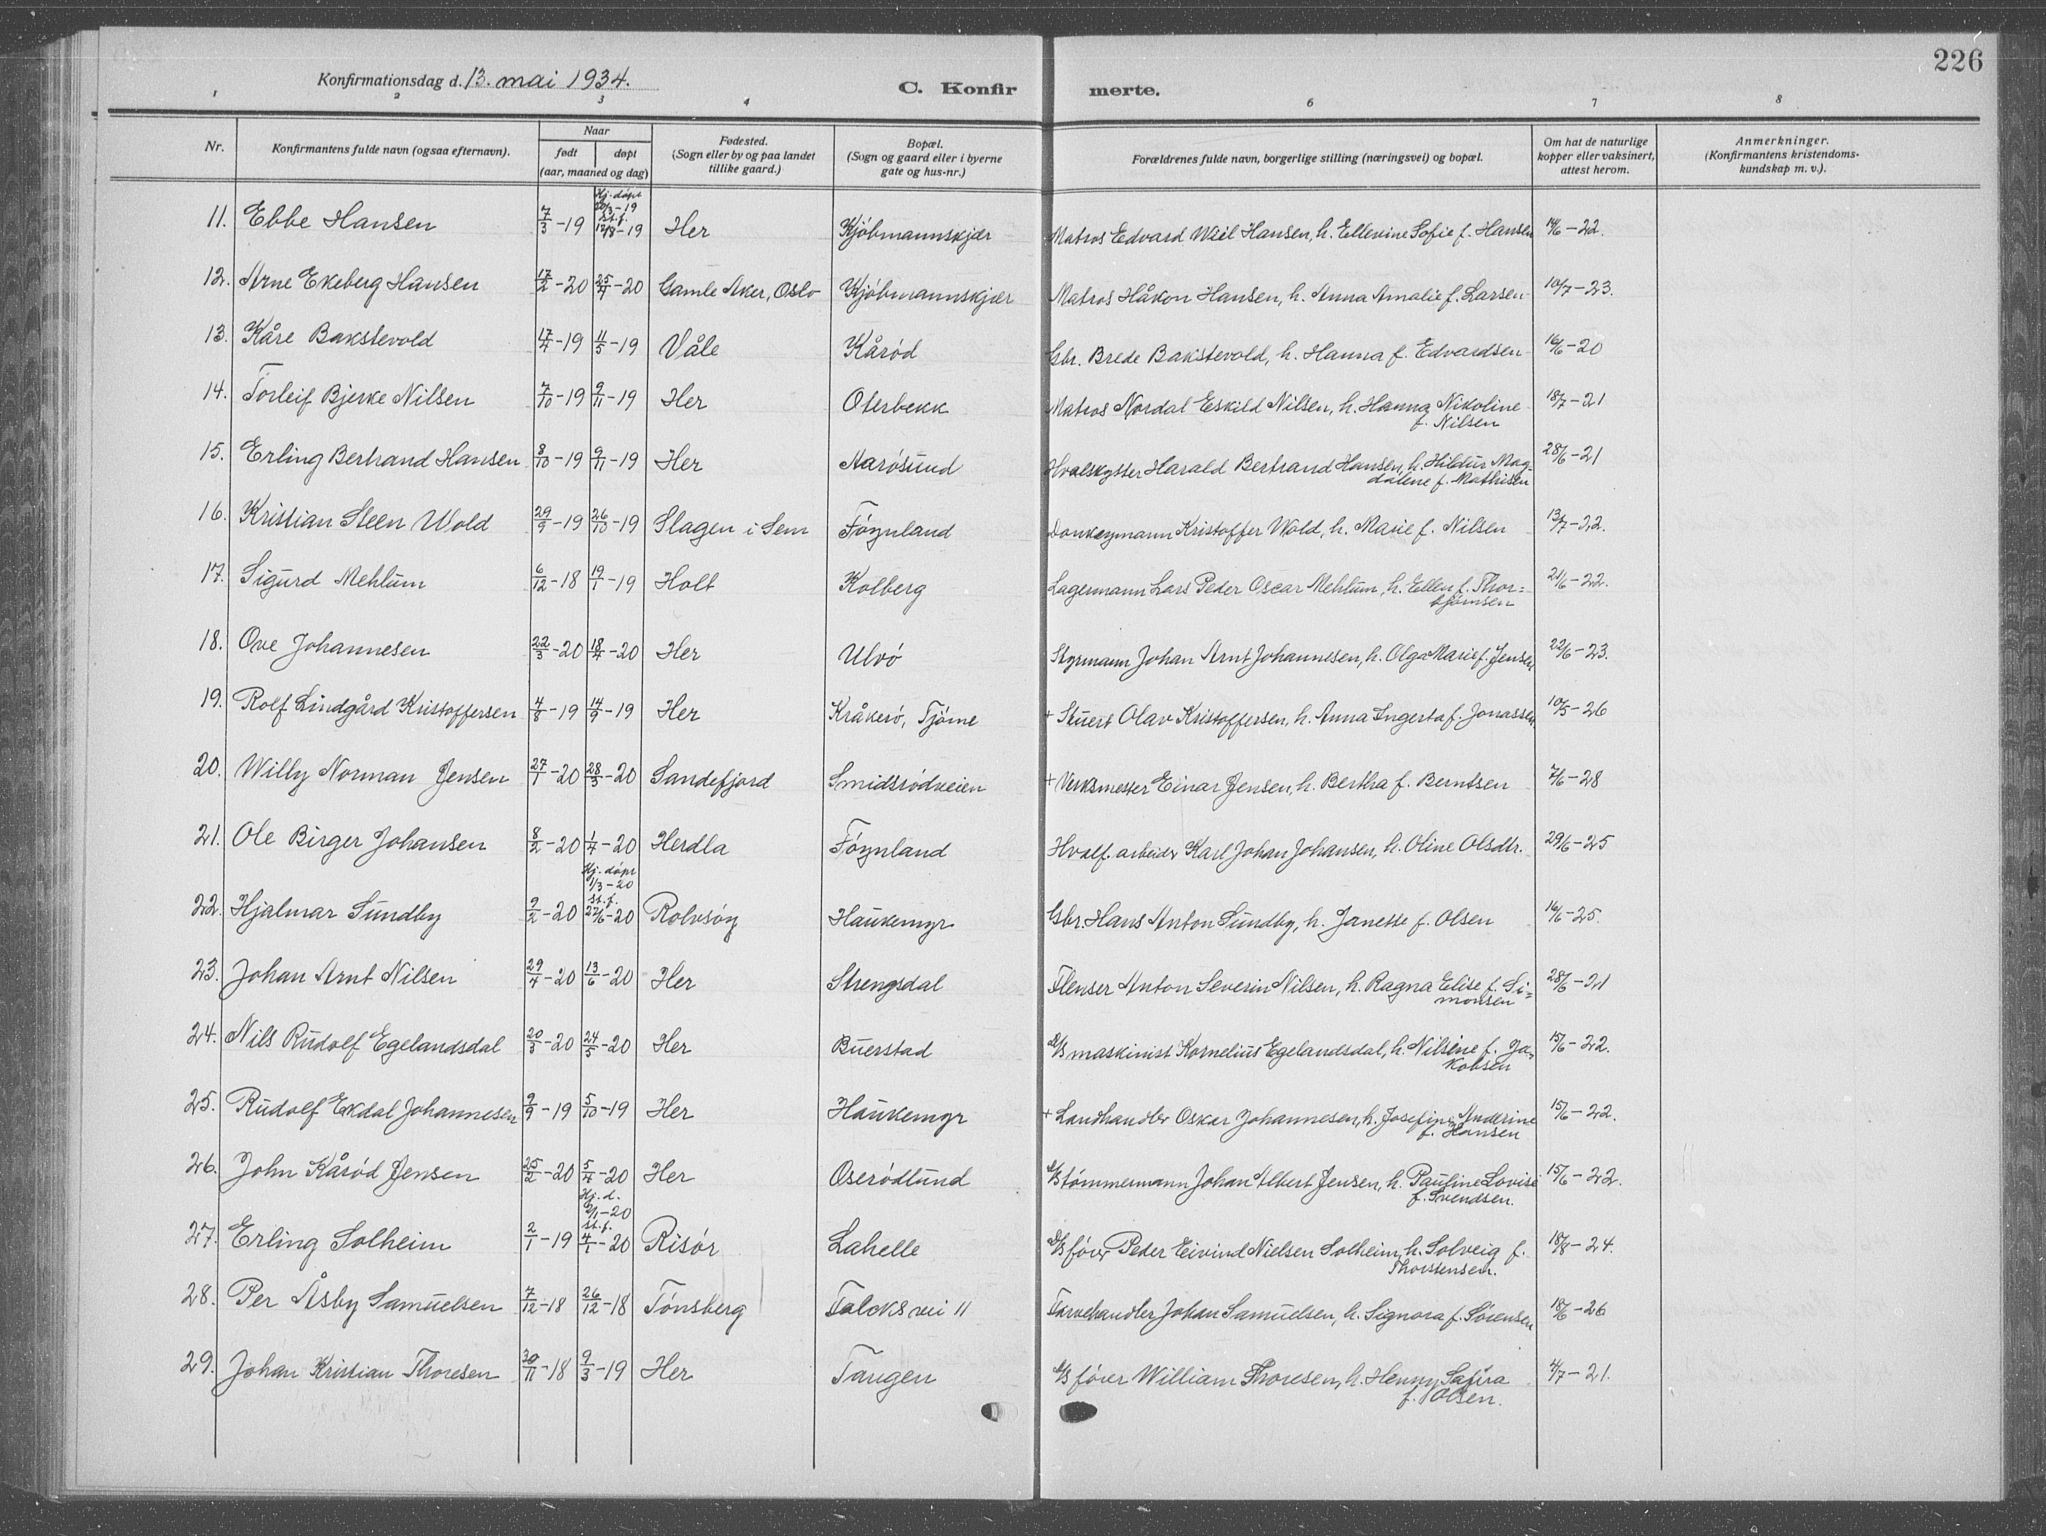 226
Konfirmationsdag d. 13. mai 1934.
C. Konfirmerte.
1 2 3 4 5 6 7 8
Nr. Konfirmantens fulde navn (ogsaa efternavn). Naar født døpt (aar, maaned og dag) Fødested. (Sogn eller by og paa landet tillike gaard.) Bopæl. (Sogn og gaard eller i byerne gate og hus-nr.) Forældrenes fulde navn, borgerlige stilling (næringsvei) og bopæl. Om hat de naturlige kopper eller vaksinert, attest herom. Anmerkninger. (Konfirmantens kristendoms-kundskap m. v.).
11. Ebbe Hansen 7/3-19 Hj. døpt 20/3-19 st.f. 12/18-19 Her Kjøbmannskjær Matros Edvard Wiel Hansen, h. Ellevine Sofie f. Hansen 14/6-22.
12. Arne Ekeberg Hansen 17/2-20 25/4-20 Gamle Aker, Oslo Kjøbmannskjær Matros Håkon Hansen, h. Anna Amalie f. Larsen 10/7-23.
13. Kåre Bakstevold 17/4-19 11/5-19 Våle Kårød Gbr. Brede Bakstevold, h. Hanna f. Edvardsen 16/6-20
14. Torleif Bjerke Nilsen 7/10-19 9/11-19 Her Oterbekk Matros Nordal Eskild Nilsen, h. Hanna Nikoline f. Nilsen 18/7-21
15. Erling Bertrand Hansen 8/10-19 9/11-19 Her Aarøsund Hvalskytter Harald Bertrand Hansen, h. Hildur Mag-
dalene f. Mathisen 28/6-21
16. Kristian Steen Wold 29/9-19 26/10-19 Slagen i Sem Føynland Donkeymann Kristoffer Wold, h. Marie f. Nilsen 13/7-22.
17. Sigurd Mehlum 6/12-18 19/1-19 Holt Kolberg Lagermann Lars Peder Oscar Mehlum, h. Ellen f. Thor=
bjørnsen 21/6-22.
18. Ove Johannesen 22/3-20 18/4-20 Her Ulvø Styrmann Johan Arnt Johannesen, h. Olga Marie f. Jensen 22/6-23.
19. Rolf Lindgård Kristoffersen 4/8-19 14/9-19 Her Kråkerø, Tjøme + Stuert Olav Kristoffersen, h. Anna Ingerta f. Jonassen 10/5-26
20. Willy Norman Jensen 27/1-20 28/3-20 Sandefjord Smidsrødveien + Verksmester Einar Jensen, h. Bertha f. Berntsen 7/6-28
21. Ole Birger Johansen 8/2-20 1/4-20 Herdla Føynland Hvalf. arbeider Karl Johan Johansen, h. Oline Olsdtr. 29/6-25
22. Hjalmar Sundby 9/2-20 Hj. døpt 1/3-20 st.f. 27/6-20 Rolvsøy Haukemyr Gbr. Hans Anton Sundby, h. Janette f. Olsen 16/6-25.
23. Johan Arnt Nilsen 29/4-20 13/6-20 Her Strengsdal Flenser Anton Severin Nilsen, h. Ragna Elise f. Si=
monsen 28/6-21
24. Nils Rudolf Egelandsdal 20/3-20 24/5-20 Her Buerstad d/s maskinist Kornelius Egelandsdal, h. Nilsine f. Ja-
kobsen 15/6-22.
25. Rudolf Ekdal Johannesen 9/9-19 5/10-19 Her Haukemyr + Landhandler Oskar Johannesen, h. Josefine Andrine
f. Hansen 15/6-22.
26. John Kårød Jensen 25/2-20 5/4-20 Her Oserødlund d/s tømmermann Johan Albert Jensen, h. Pauline Lovise
f. Svendsen. 15/6-22.
27. Erling Solheim 2/1-19 Hj. d. 2/1-20 st.f. 4/1-20 Risør Lahelle d/s fører Peder Eivind Nielsen Solheim, h. Solveig f.
Thorstensen. 18/8-24.
28. Per Åsby Samuelsen 7/12-18 26/12-18 Tønsberg Falcks vei 11 Farvehandler Johan Samuelsen, h. Signora f. Sørensen 18/6-26
29. Johan Kristian Thoresen 30/11-18 9/3-19 Her Tangen d/s fører William Thoresen, h. Henny Safira
f. Olsen. 4/7-21.